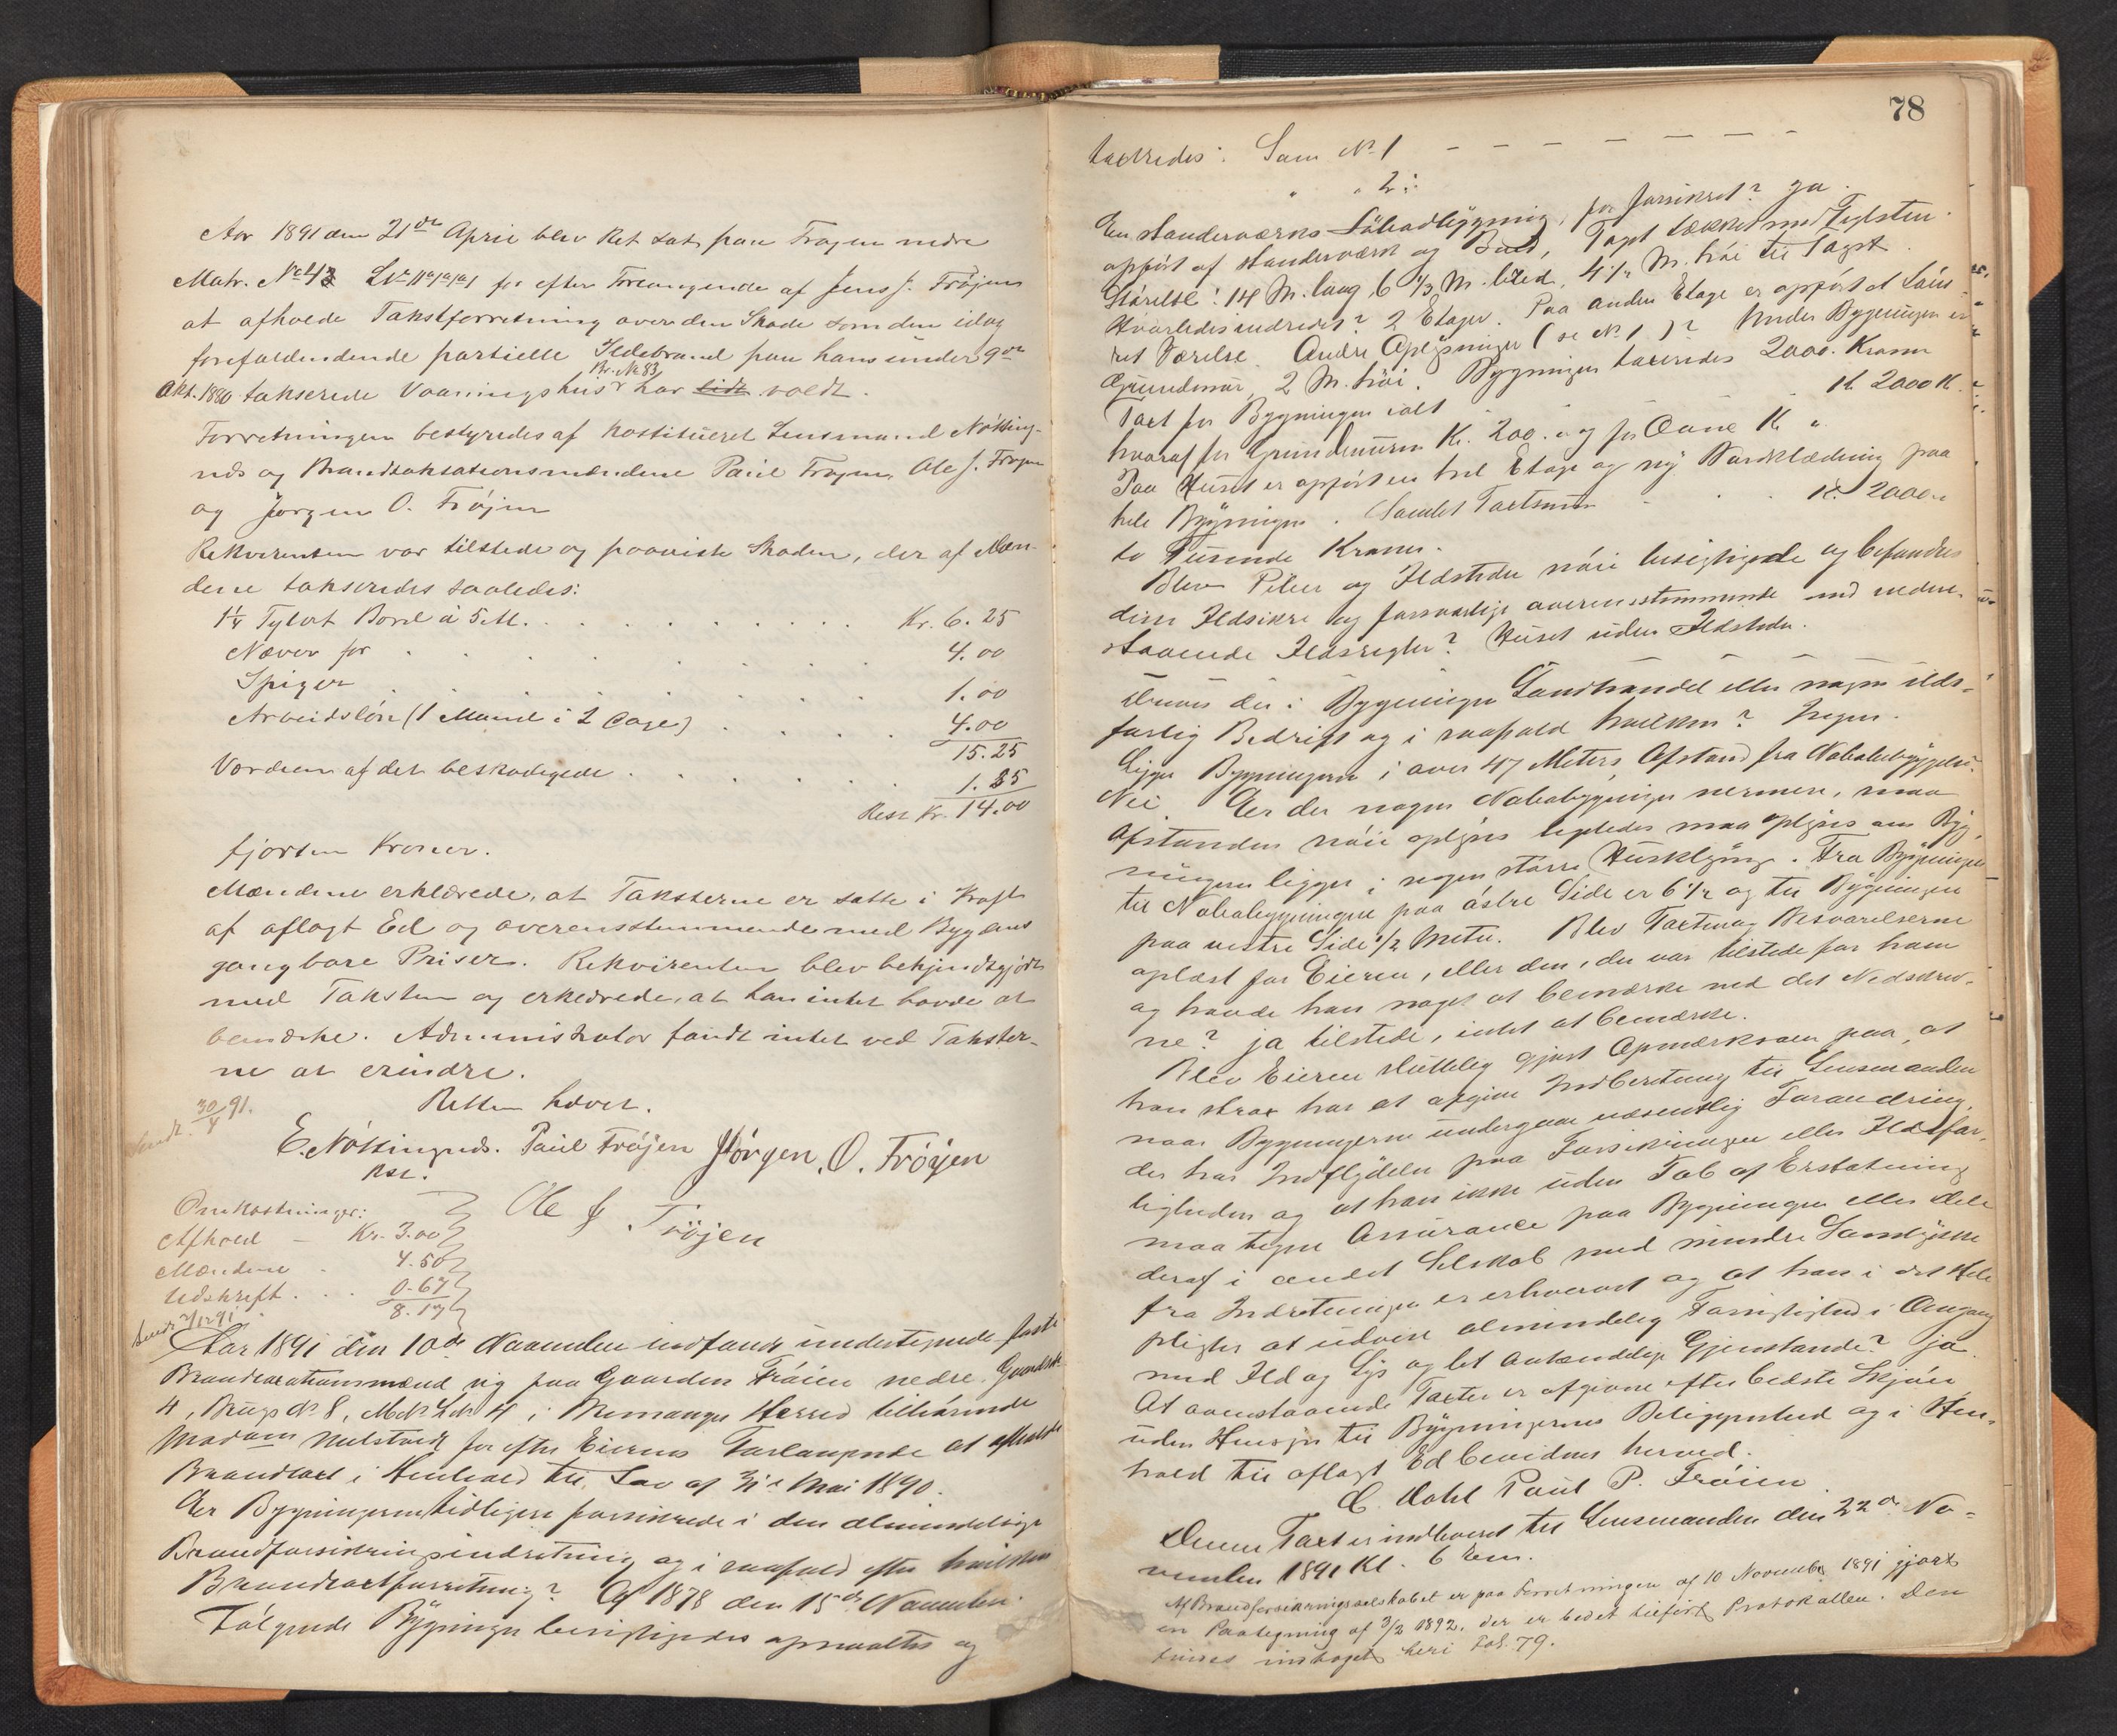 Aar 1891 den 21de April blev Ret sat paa Frøyen nedre
Matr. No 43 for efter Forlangende af Jens J. Frøjen
at afholde Takstforretning over den Skade som den idag
forefaldendende partielle Ildebrand paa hans under 9de
Br. No 83
Okt. 1880 takserede Vaaningshus har lidt voldt.
Forretningen bestyredes af konstitueret Lensmand Nøtting-
nes og Brandtakstationsmændene Paul Frøyen, Ole J. Frøyen
og Jørgen O. Frøjen
Rekvirenten var tilstede og paaviste Skaden, der af Mæn-
dene takseredes saaledes:
1¼ Tylvt Bord à 5 Kr. . . . . . . . . . Kr. 6.25
Næver for . . . . . . . . 4.00
Spiger . . . . . . . . 1.00
Arbeidsløn (1 Mand i 2 Dage) . . . . . 4.00
15.25
Værdien af det beskadigede . . . . . . 1.25
Rest Kr. 14.00
fjorten Kroner.
Mændene erklærede, at Taksterne er satte i Kraft
af aflagt Ed og overensstemmende med Bygdens
gangbare Priser. Rekvirenten blev bekjendtgjort
med Taksten og erklærede, at han intet havde at
bemærke. Administrator fandt intet ved Takster-
ne at erindre.
Retten hævet.
Sendt. 30/4 91.
E. Nøttingnes. Paul Frøjen Jørgen. O. Frøyen
kst.
Ole J. Frøjen
Omkostninger:
Afhold — Kr. 3.00
Mændene . 4.50
Udskrift . . . 0.67
8.17
Sendt 2/12 91
Aar 1891 den 10de November indfandt undertegnede faste
Brandtaxationsmænd sig paa Gaarden Frøien nedre Gaards No
4, Brugs No 8, i Bremanger Herred tilhørende
Madam for efter Eierens Forlangende at afholde
Brandtaxt i Henhold til Lov af Mai 1890.
Er Bygningerne tidligere forsikrede i den almindelige
Brandforsikringsindretning og i saafald efter hvilken
Brandtaxtforretning? Af 1878 den 15de November.
Følgende Bygninger besigtigedes opmaaltes og
78
taxtredes: Som No 1 — — — — — — —
" " 2:
En standerværks Søbodbygning, før forsikret? ja.
opført af standerværk og Bord, Taget tækket med Teglsten.
Størrelse: 14 M. lang 6 1/3 M. bred, 4½ M. høi til Taget.
Hvorledes indredet? 2 Etager. Paa anden Etage er opført et
ret Værelse. Andre Oplysninger (se No 1)? Under Bygningen er
Grundmur 2 M. høi. Bygningen taxeredes 2000. Kroner
Taxt for Bygningen ialt . . . . K. 2000 K.
hvoraf for Grundmuren Kr. 200. og for Ovne K "
Paa Huset er opført en hel Etage og ny Bordklædning paa
hele Bygningen. Samlet Taxtsum . . . Kr. 2000.
to Tusinde Kroner.
Blev Piber og Ildsteder nøie besigtigede og befandtes
disse Ildsikre og forsvarlige overensstemmende med neden-
staaende Ildsregler? Huset uden Ildsteder.
Drives der i Bygningen Landhandel eller nogen ilds-
farlig Bedrift og i saafald hvilken? Ingen.
Ligger Bygningerne i over 47 Meters Afstand fra Nabobebyggelse?
Nei. Er der nogen Nabobygninger nærmere, maa
Afstanden nøie oplyses ligeledes maa oplyses om Byg-
ningerne ligger i nogen større Husklynge. Fra Bygningen
til Nabobygningen paa østre Side er 6½ og til Bygningen
paa vestre Side ½ Meter. Blev Taxten og Besvarelserne
oplæst for Eieren, eller den, der var tilstede for ham
og havde han noget at bemærke med det Nedskrev-
ne? ja tilstede, intet at bemærke.
Blev Eieren sluttelig gjort Opmærksom paa, at
han strax har at afgive Indberetning til Lensmanden
naar Bygningerne undergaar væsentlig Forandring,
der har Indflydelse paa Forsikringen eller Ildsfar-
ligheden og at han ikke uden Tab af Erstatning
maa tegne Assurance paa Bygningen eller Dele
deraf i andet Selskab med mindre Samtykke
fra Indretningen er erhvervet og at han i det Hele
pligter at udvise almindelig Forsigtighed i Omgang
med Ild og Lys og let antændelige Gjenstande? Ja.
At ovenstaaende Taxter er afgivne efter bedste Skjøn
uden Hensyn til Bygningernes Beliggenhed og i Hen-
hold til aflagt Ed bevidnes herved.
C. Dahl Paul P. Frøien
Denne Taxt er indleveret til Lensmanden den 22de No-
vember 1891 Kl. 6 Em.
Af Brandforsikringsselskabet er paa Forretningen af 10 November 1891 gjort
en Paategning af 3/2 1892, der er bedet tilført Protokollen. Den
findes indtaget heri Fol. 79.